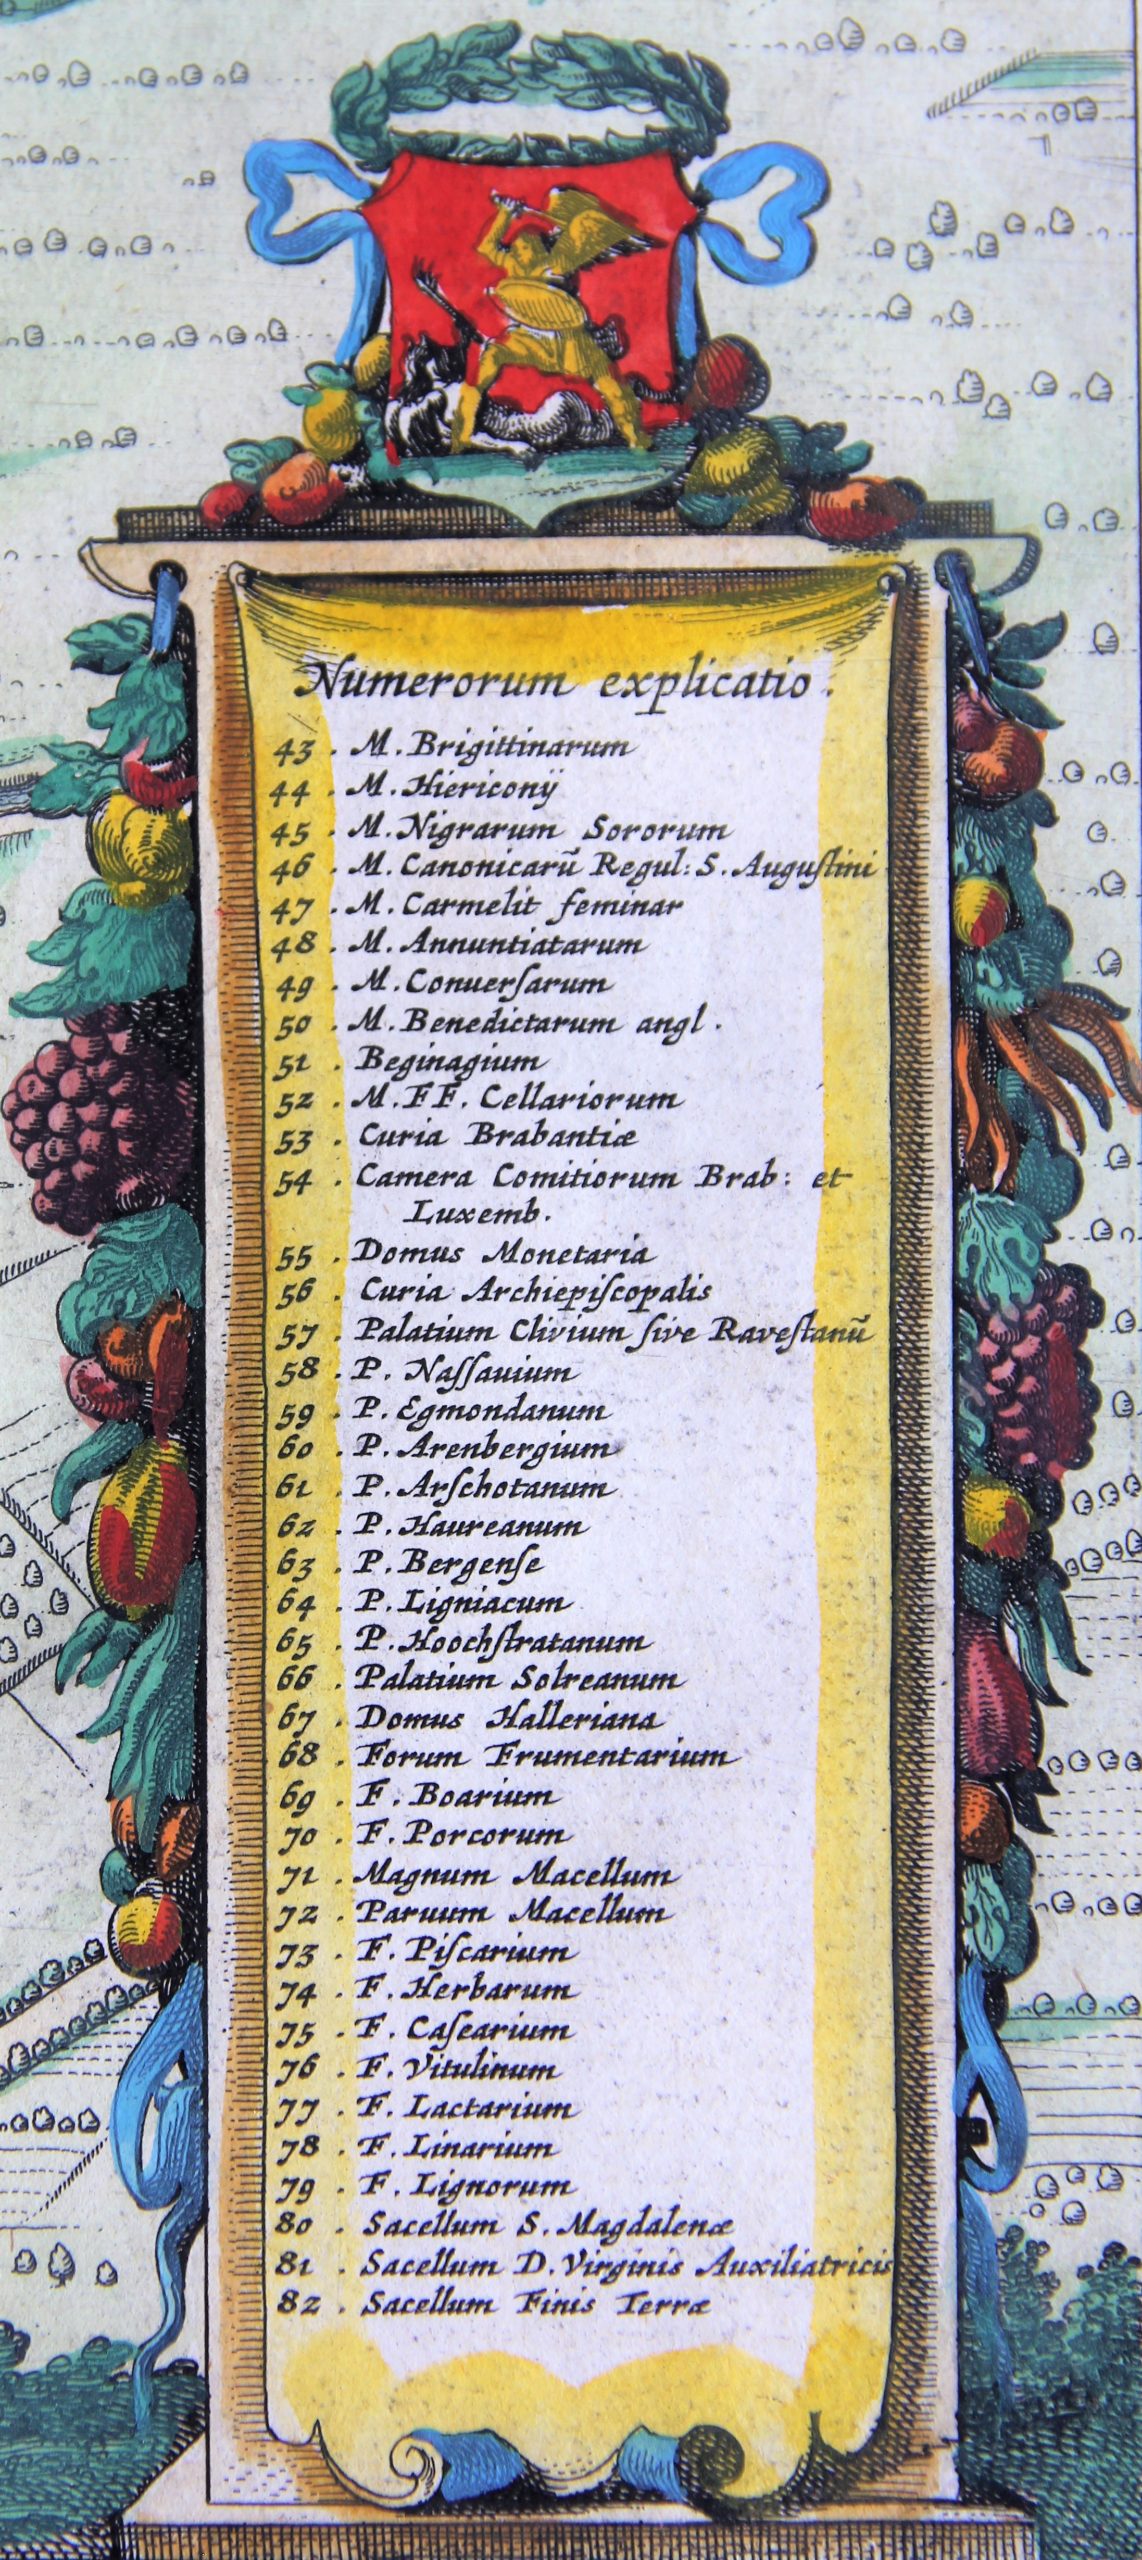 Numerorum explicatio.
43 . M. Brigittinarum
44 . M. Hiericonÿ
45 . M. Nigrarum Sororum
46 . M. Canonicarũ Regul: S. Auguſtini
47 . M. Carmelit feminar
48 . M. Annuntiatarum
49 . M. Conuerſarum
50 . M. Benedictarum angl.
51 . Beginagium
52 . M. FF. Cellariorum
53 . Curia Brabantiæ
54 . Camera Comitiorum Brab: et
Luxemb.
55 . Domus Monetaria
56 . Curia Archiepiſcopalis
57 . Palatium Clivium ſive Raveſtanũ
58 . P. Naſſauium
59 . P. Egmondanum
60 . P. Arenbergium
61 . P. Arſchotanum
62 . P. Haureanum
63 . P. Bergenſe
64 . P. Ligniacum
65 . P. Hoochſtratanum
66 . Palatium Solreanum
67 . Domus Halleriana
68 . Forum Frumentarium
69 . F. Boarium
70 . F. Porcorum
71 . Magnum Macellum
72 . Paruum Macellum
73 . F. Piſcarium
74 . F. Herbarum
75 . F. Caſearium
76 . F. Vitulinum
77 . F. Lactarium
78 . F. Linarium
79 . F. Lignorum
80 . Sacellum S. Magdalenæ
81 . Sacellum D. Virginis Auxiliatricis
82 . Sacellum Finis Terræ